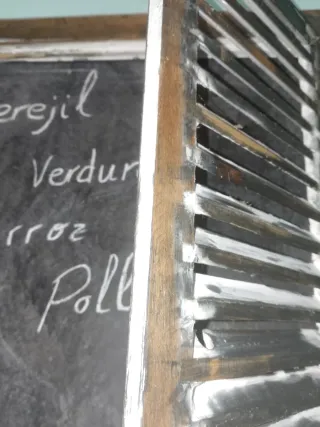 erejil
Verdur
rroz
Poll